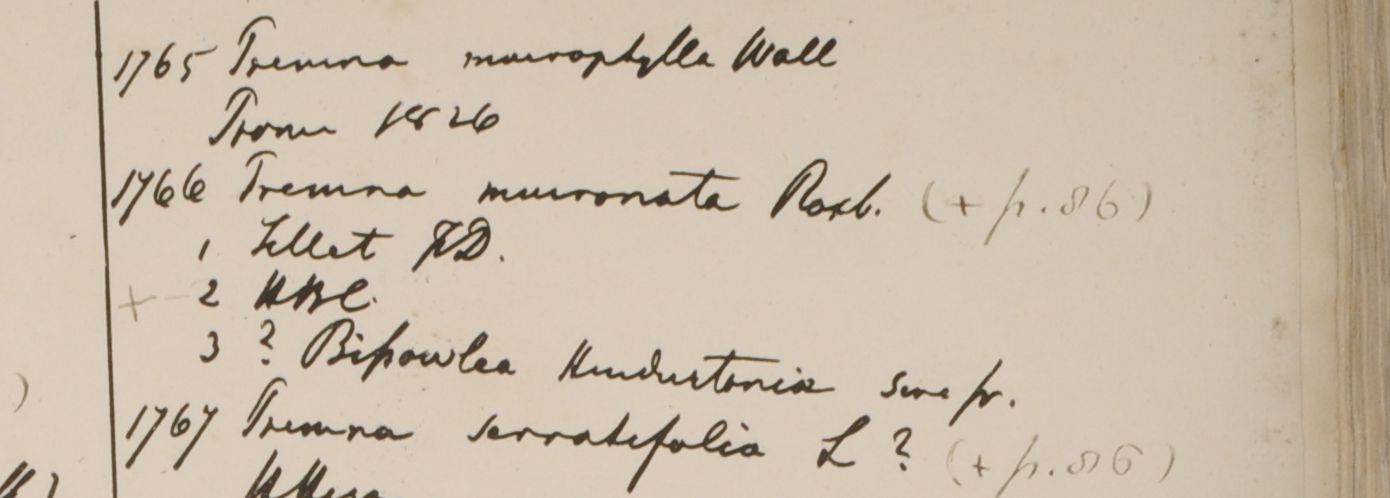 1765 Premna macrophylla Wall
Prome 1826
1766 Premna mucronata Roxb. (+ p. 86)
1 Sillet FD.
+ 2 HBC.
3 ? Bipowlea Hindustania sine fr.
1767 Premna serratifolia L ? (+ p. 86)